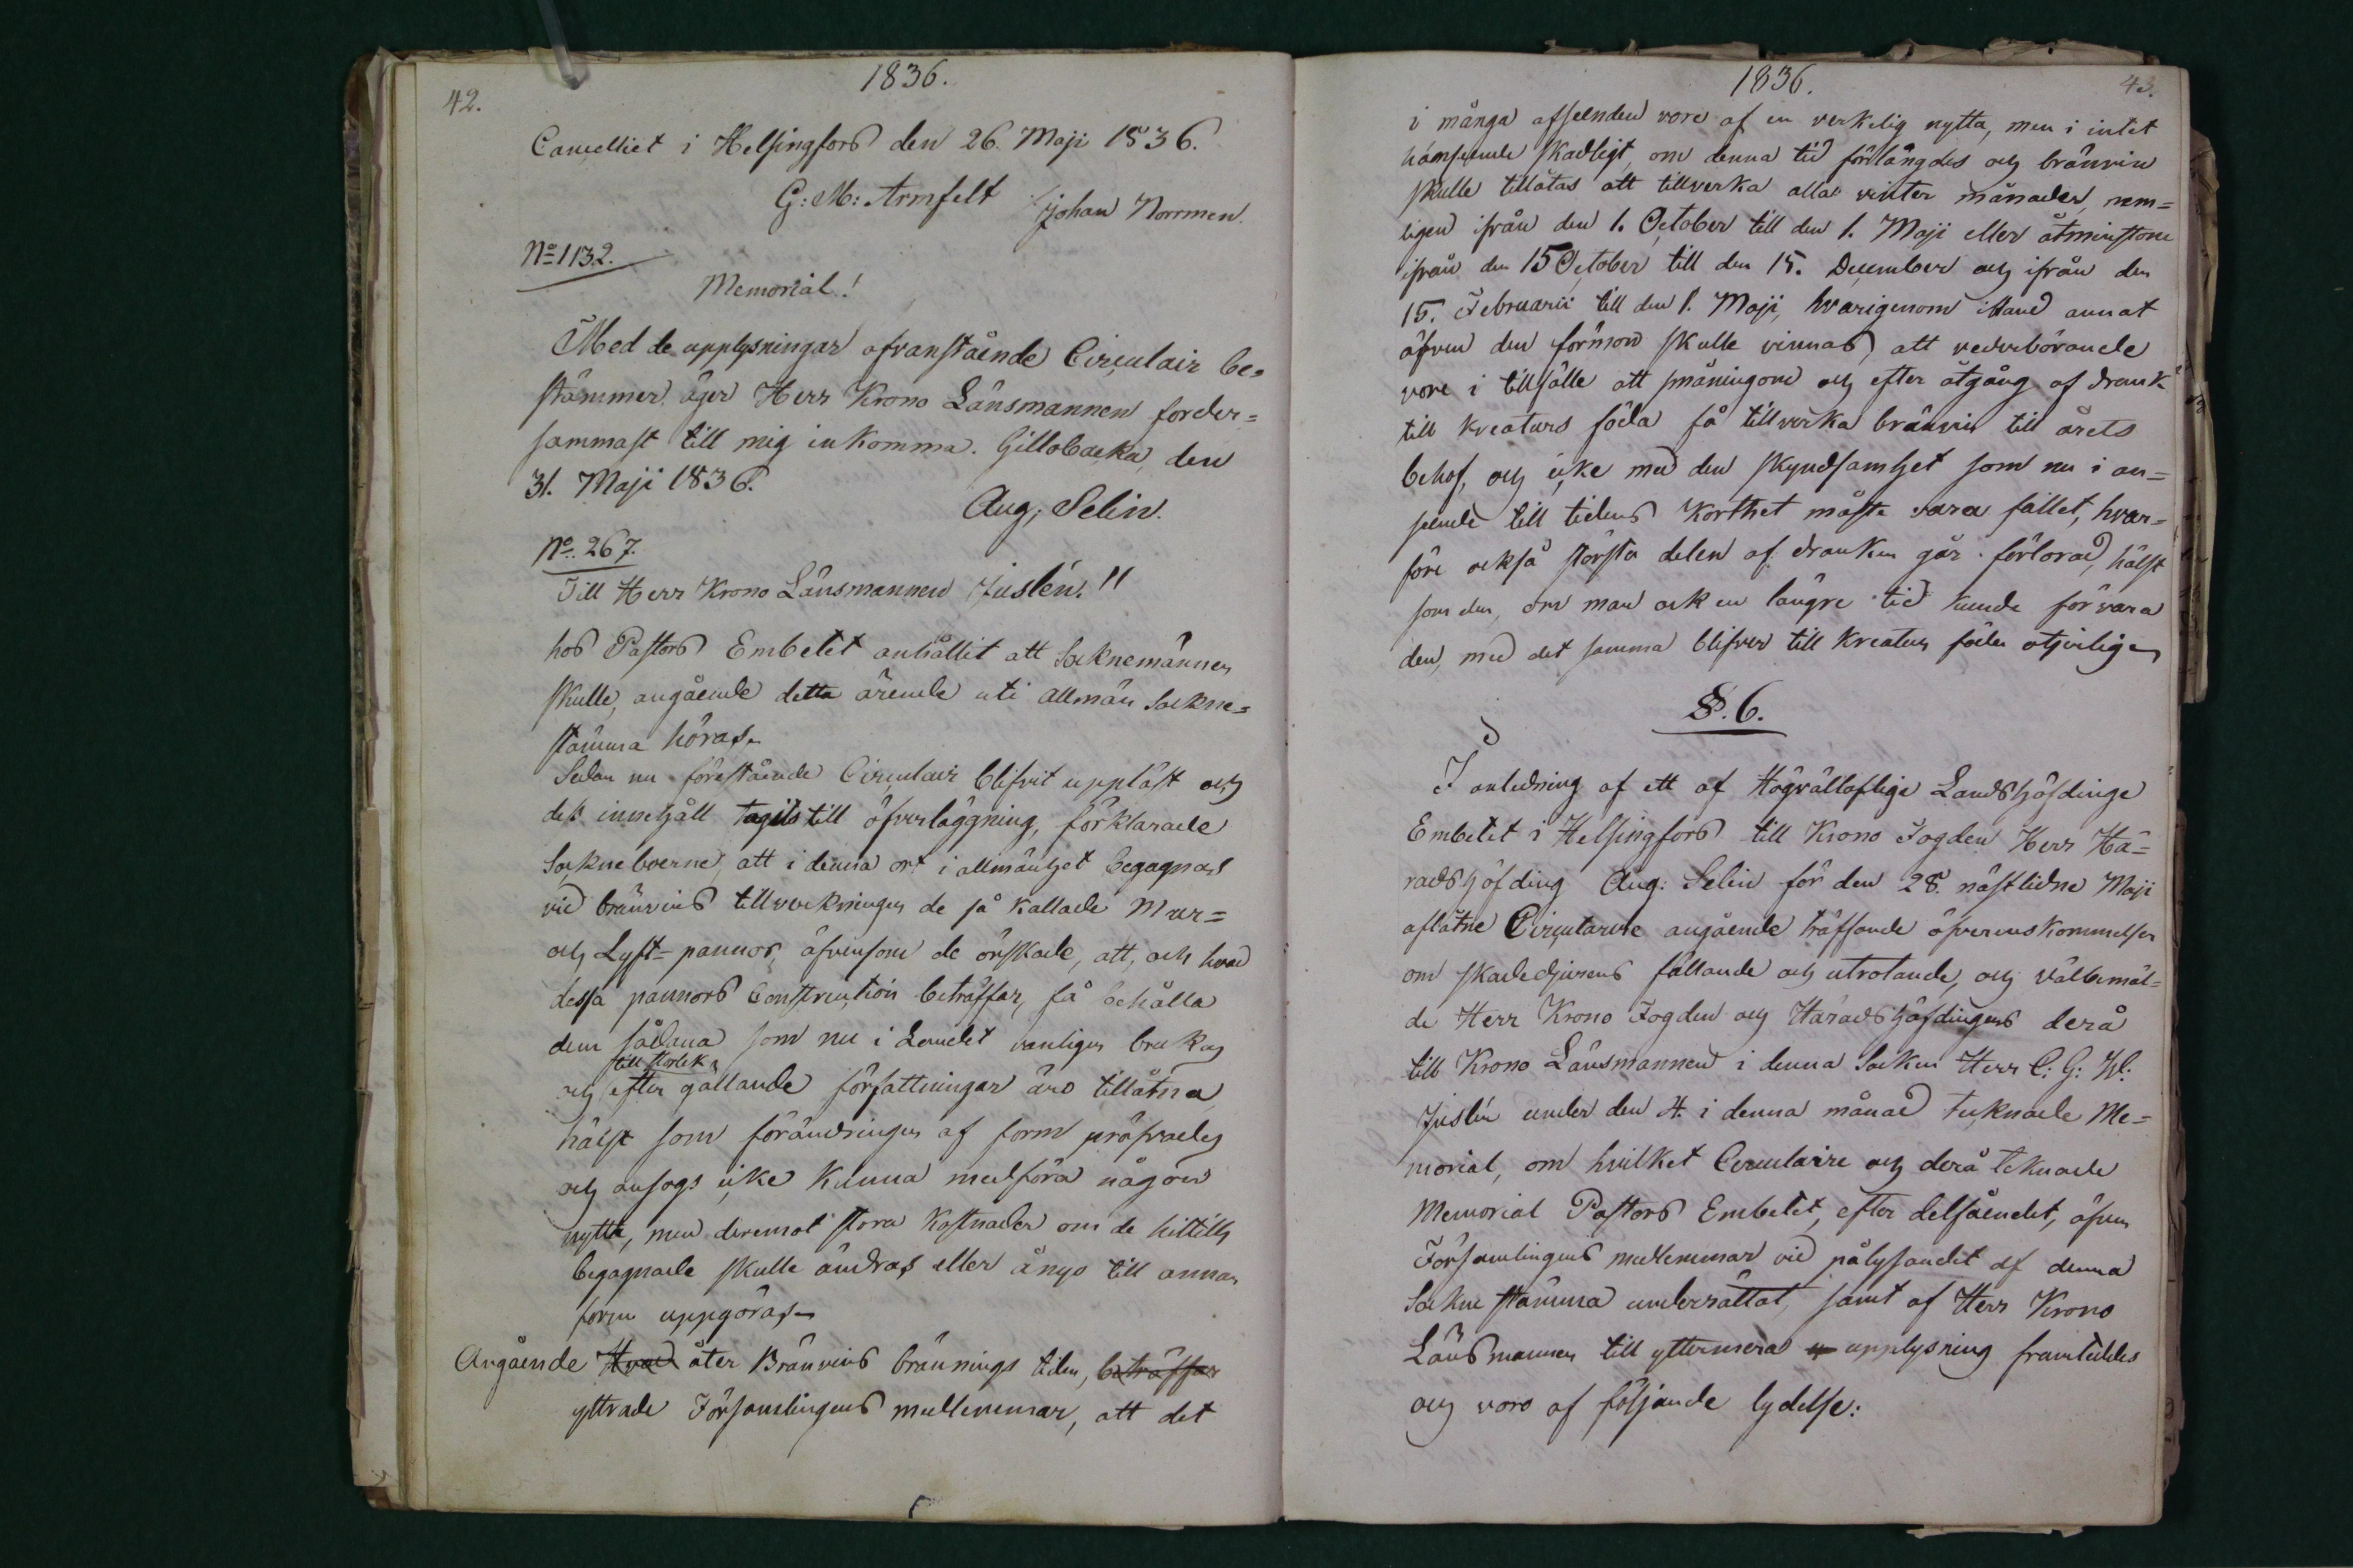 42.
1836.
Cancelliet i Helsingfors den 26. Maji 1836.
G: M: Armfelt
Johan Norrmen.
No 1132.
Memorial!
Med de upplysningar ofvanstående Circulair be-
stämmer, äger Herr Krono Länsmannen forder-
sammast till mig inkomma. Gillobacka, den
31. Maji 1836.
Aug; Selin.
No. 267.
Till Herr Krono Länsmannen Juslén."
hos Pastors Embetet anhållit att Socknemännen
skulle, angående detta ärende uti allmän Sockne-
stämma höras.
Sedan nu förestående Circulair blifvit uppläst och
dess innehåll tagits till öfverläggning, förklarade
Sockneboerne, att i denna ort i allmänhet begagnas
vid bränvins tillverkningen de så kallade Mur-
och Lyft-pannor, äfvensom de önskade, att, och hvad
dessa pannors Construction beträffar, få behålla
dem sådana som nu i Landet vanligen brukas
till storlek
och efter gällande författningar äro tillåtna,
hälst som förändringen af form pröfvades
och ansogs icke kunna medföra någon
nytta, men deremot stora kostnader om de hittills
begagnade skulle ändras eller ånyo till annan
form uppgöras.
Angående Hvad åter Bränvins bränings tiden, beträffar
yttrade Församlingens medlemmar, att det
1836.
43.
i många afseenden vore af en verkelig nytta, men i intet
hänseende skadligt, om denna tid förlängdes och bränvin
skulle tillåtas att tillverka alla vinter månader, nem-
ligen ifrån den 1. October till den 1. Maji eller åtminstone
ifrån den 15 October till den 15. December och ifrån den
15. Februarii till den 1. Maji, hvarigenom ibland annat
äfven den förmon skulle vinnas, att vederbörande
vore i tillfälle att småningom och efter åtgång af drank
till kreaturs föda få tillverka bränvin till årets
behof, och icke med den skyndsamhet som nu i an-
seende till tidens korthet måste vara fallet, hvar-
före också största delen af dranken går förlorad, hälst
som den, om man ock en längre tid kunde förvara
den, med det samma blifver till kreaturs föda otjenlig.
§. 6.
I anledning af ett af Högvälloflige Landshöfdinge
Embetet i Helsingfors till Krono Fogden Herr Hä-
radshöfding Aug: Selin för den 28. nästlidne Maji
aflåtne Circulaire angående träffande öfverenskommelser
om skadedjurens fällande och utrotande, och välbemäl-
de Herr Krono Fogden och Häradshöfdingens derå
till Krono Länsmannen i denna Socken Herr C: G: W:
Juslén under den 4. i denna månad tecknade Me-
morial, om hvilket Circulaire och derå tecknade
Memorial Pastors Embetet, efter delfåendet, äfven
Församlingens medlemmar vid pålysandet af denna
Sockne stämma underrättat, samt af Herr Krono
Länsmannen till yttermera upplysning framteddes
och voro af följande lydelse: